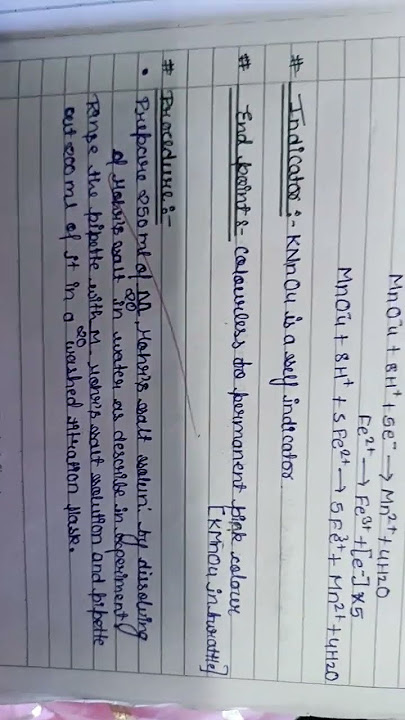 MnO4⁻ + 8H⁺ + 5e⁻ → Mn²⁺ + 4H2O
Fe²⁺ → Fe³⁺ + [e⁻] × 5
MnO4⁻ + 8H⁺ + 5Fe²⁺ → 5Fe³⁺ + Mn²⁺ + 4H2O
# Indicator :- KMnO4 is a self indicator.
# End point :- Colourless to permanent pink colour
[KMnO4 in burattle]
# Procedure :-
• Prepare 250 ml of M/20 Mohr's salt soluin' by dissolving
of Mohr's salt in water as describe in experiment
Range the pipette with M/20 Mohr's salt solution and pipette
out 200 ml of it in a washed titration flask.